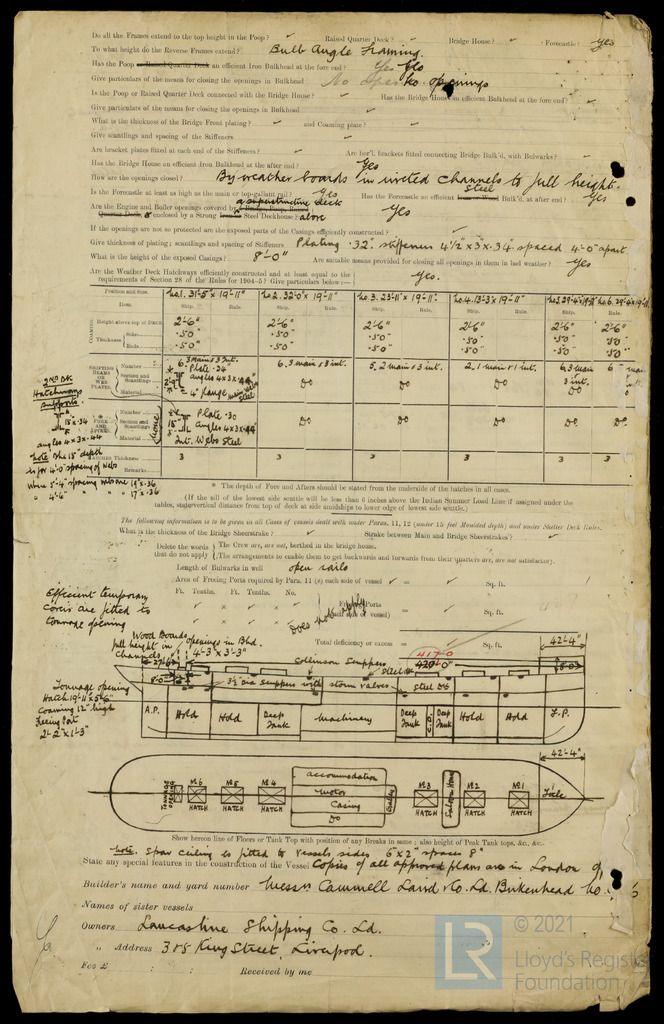 Do all the Frames extend to the top height in the Poop? Raised Quarter Deck? Bridge House? Forecastle? Yes
To what height do the Reverse Frames extend? Bulb Angle Framing.
Has the Poop or Raised Quarter Deck an efficient Iron Bulkhead at the fore end? Yes
Give particulars of the means for closing the openings in Bulkhead No openings
Is the Poop or Raised Quarter Deck connected with the Bridge House? Has the Bridge House an efficient Bulkhead at the fore end?
Give particulars of the means for closing the openings in Bulkhead
What is the thickness of the Bridge Front plating? and Coaming plate?
Give scantlings and spacing of the Stiffeners
Are bracket plates fitted at each end of the Stiffeners? Are hor'l. brackets fitted connecting Bridge Bulk'd, with Bulwarks?
Has the Bridge House an efficient Iron Bulkhead at the after end? Yes
How are the openings closed? By weather boards in riveted channels to full height.
Is the Forecastle at least as high as the main or top-gallant rail? Yes Has the Forecastle an efficient steel Iron or Wood Bulk'd, at after end? Yes
Are the Engine and Boiler openings covered by a superstructure deck
Quarter Deck, & enclosed by a Strong Steel Deckhouse? above Yes
If the openings are not so protected are the exposed parts of the Casings efficiently constructed?
Give thickness of plating; scantlings and spacing of Stiffeners Plating .32" stiffeners 4½ x 3 x .34 spaced 4'-0" apart
What is the height of the exposed Casings? 8'-0" Are suitable means provided for closing all openings in them in bad weather? Yes
Are the Weather Deck Hatchways efficiently constructed and at least equal to the
requirements of Section 28 of the Rules for 1904-5? Give particulars below:— Yes.
Position and Size. No.1. 31'-5" x 19'-11" No 2. 32'-0" x 19'-11" No. 3. 23'-11" x 19'-11" No. 4. 13'-3 x 19'-11" No 5. No 6.
Item. Ship. Rule. Ship. Rule. Ship. Rule. Ship. Rule. Ship. Ship. Rule.
COAMING Height above top of DECK 2'-6" 2'-6" 2'-6" 2'-6" 2'-6" 2'-6"
Thickness Sides .50" .50" .50" .50" .50" .50
Ends .50" .50" .50" .50" .50" .50
SHIFTING BEAMS OR WEB PLATES Number 6. 3 Main & 3 Int. 6. 3 main & 3 int. 5. 2 main & 3 int. 2. 1 main & 1 int. 6. 3 main 3 int.
Section and Scantlings Plate .34 angles 4 x 3 x .44 Do Do Do Do
Material 4" flange steel
FORE AND AFTERS Number None
Section and Scantlings Plate .30 Angles 4 x 3 x .44 Do Do Do Do
Material Int. Webs steel
HATCHES Thickness 3 3 3 3 3 3
Remarks
2ND DK
Hatchways
Supports
15" x .34
angles 4 x 3 x .44
Note The 15" depth
is for 4'-0" spacing of Webs
Where 5'-4" spacing webs are 19" x .36
" 4'-6" " " " 17" x .36
* The depth of Fore and Afters should be stated from the underside of the hatches in all cases.
(If the sill of the lowest side scuttle will be less than 6 inches above the Indian Summer Load Line if assigned under the
tables, state vertical distance from top of deck at side amidships to lower edge of lowest side scuttle.)
The following information is to be given in all Cases of Vessels dealt with under Paras. 11, 12 (under 15 feet Moulded depth) and under Shelter Deck Rules.
What is the thickness of the Bridge Sheerstrake? Strake between Main and Bridge Sheerstrakes?
Delete the words that do not apply The Crew are, are not, berthed in the bridge house.
The arrangements to enable them to get backwards and forwards from their quarters are, are not satisfactory.
Length of Bulwarks in well open rails
Area of Freeing Ports required by Para. 11 (e) each side of vessel = Sq. ft.
Ft. Tenths. Ft. Tenths. No.
Freeing Ports
(each side of vessel) = Sq. ft.
Does not apply
Total deficiency or excess = Sq. ft.
Efficient temporary
covers are fitted to
tonnage opening
Wood Boards
full height in
Channels
openings in Bhd.
4'-3" x 3'-3"
417.0
420'-0"
42'-4"
27'-6"
8'-0"
8'-0"
3½ dia scuppers with storm valves
Steel Dk
Tonnage opening
Hatch 19'-11" x 5'-6"
Coaming 12" high
Freeing Port
2'-2" x 1'-3"
A.P. Hold Hold Deep Tank Machinery Deep Tank C.D. Deep Tank Hold Hold F.P.
42'-4"
TONNAGE OPENING No 6 HATCH No 5 HATCH No 4 HATCH accommodation motor Casing Do Galley No 3 HATCH Saloon House No 2 HATCH No 1 HATCH Fcle
Show hereon line of Floors or Tank Top with position of any Breaks in same; also height of Peak Tank tops, &c., &c.
Note. Spar ceiling is fitted to vessels sides 6" x 2" spaced 8"
State any special features in the construction of the Vessel Copies of all approved plans are in London
Builder's name and yard number Messrs Cammell Laird & Co. Ld. Birkenhead No.
Names of sister vessels
Owners Lancashire Shipping Co. Ld.
" Address 385 King Street, Liverpool.
Fee £ : : Received by me
LR
© 2021
Lloyd's Register
Foundation